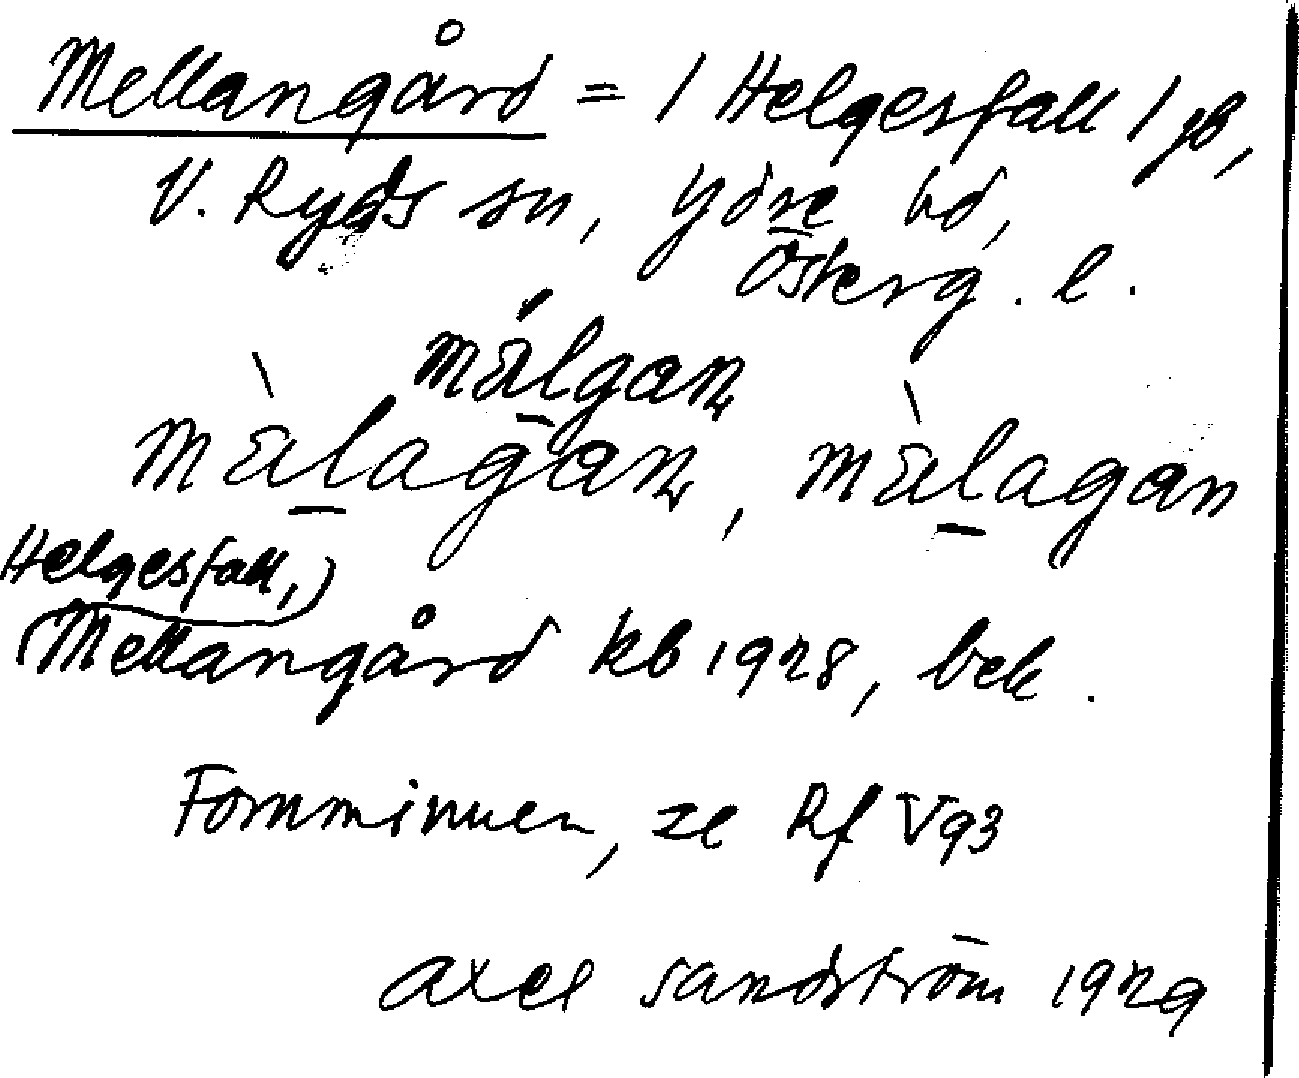 Mellangård = 1 Helgesfall 1 gb,
V. Ryds sn, Ydre hd,
Österg. l.
mälgan
mälagan, mälagan
Helgesfall,
(Mellangård kb 1928, bek.
Fornminnen, se Rf V93
Axel Sandström 1929